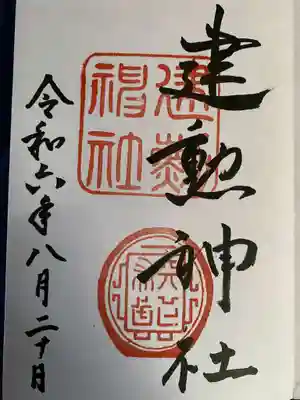 建勲神社
令和六年八月二十日
建勲
神社